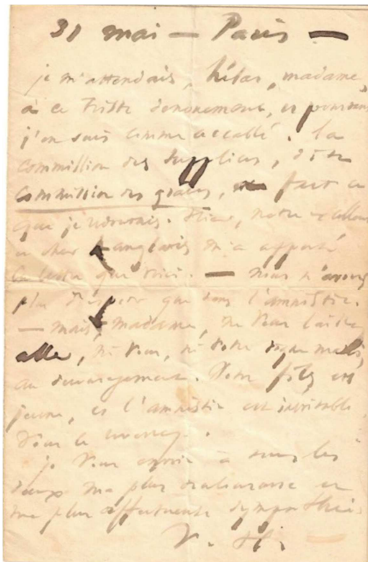 31 mai — Paris —
je m'attendais, hélas, madame,
à ce triste dénouement, et pourtant
j'en suis comme accablé. La
commission des supplices, dite
commission des grâces, a fait ce
que je
Hier, notre excellent
et cher Langlois m'a apporté
la lettre que voici. — Nous n'avons
plus d'espoir que dans l'amnistie.
— mais, madame, ne vous laissez
aller, ni vous, ni votre digne mari,
au découragement. Votre fils est
jeune, et l'amnistie est inévitable.
Vous le reverrez.
je vous envoie à tous les
deux ma plus douloureuse et
ma plus affectueuse sympathie.
V. H.